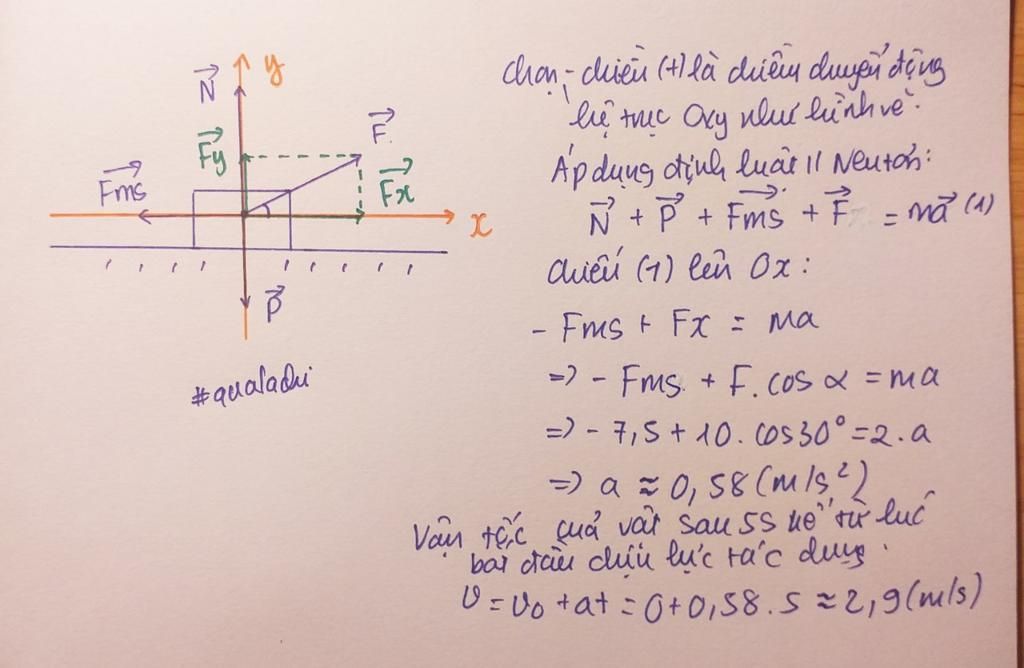 y
N
F
Fy
Fx
Fms
x
P
#qualadui
Chọn - chiều (+) là chiều chuyển động
hệ trục Oxy như hình vẽ.
Áp dụng định luật II Newton:
N + P + Fms + F = ma (1)
Chiếu (1) lên Ox:
- Fms + Fx = ma
=> - Fms + F. cos α = ma
=> - 7,5 + 10. cos30° = 2. a
=> a ≈ 0,58 (m/s²)
Vận tốc của vật sau 5s kể từ lúc
bắt đầu chịu lực tác dụng.
v = v₀ + at = 0 + 0,58. 5 ≈ 2,9 (m/s)